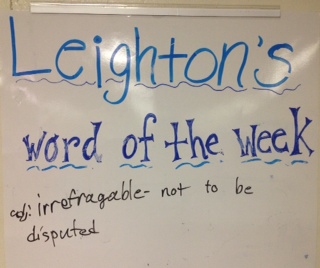 Leighton's
word of the week
adj: irrefragable- not to be
disputed